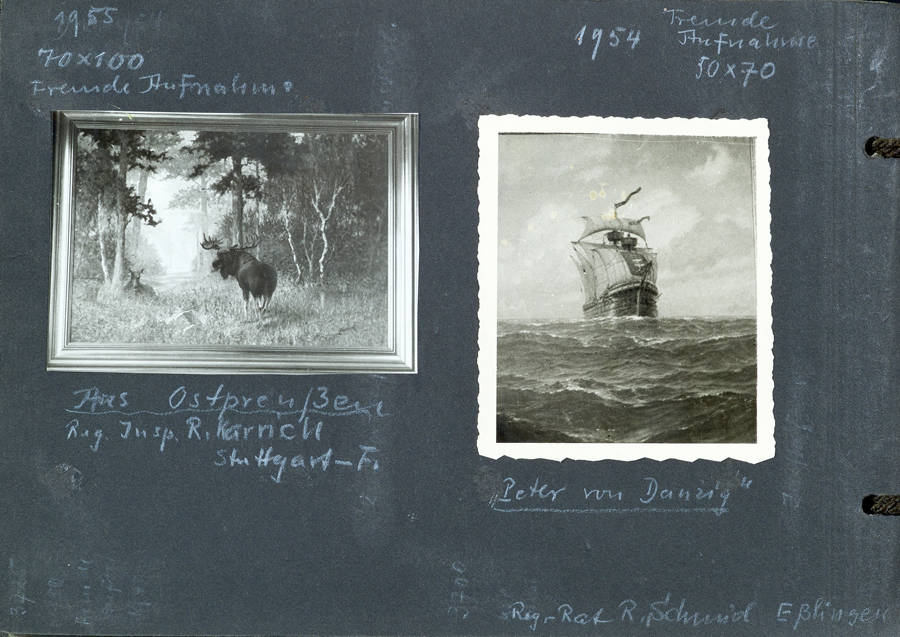 1955
70x100
Fremde Aufnahme
Aus Ostpreußen
Reg. Insp. R.
Stuttgart-F.
1954
Fremde
Aufnahme
50x70
„Peter von Danzig"
Reg.-Rat R. Schmid Eßlingen